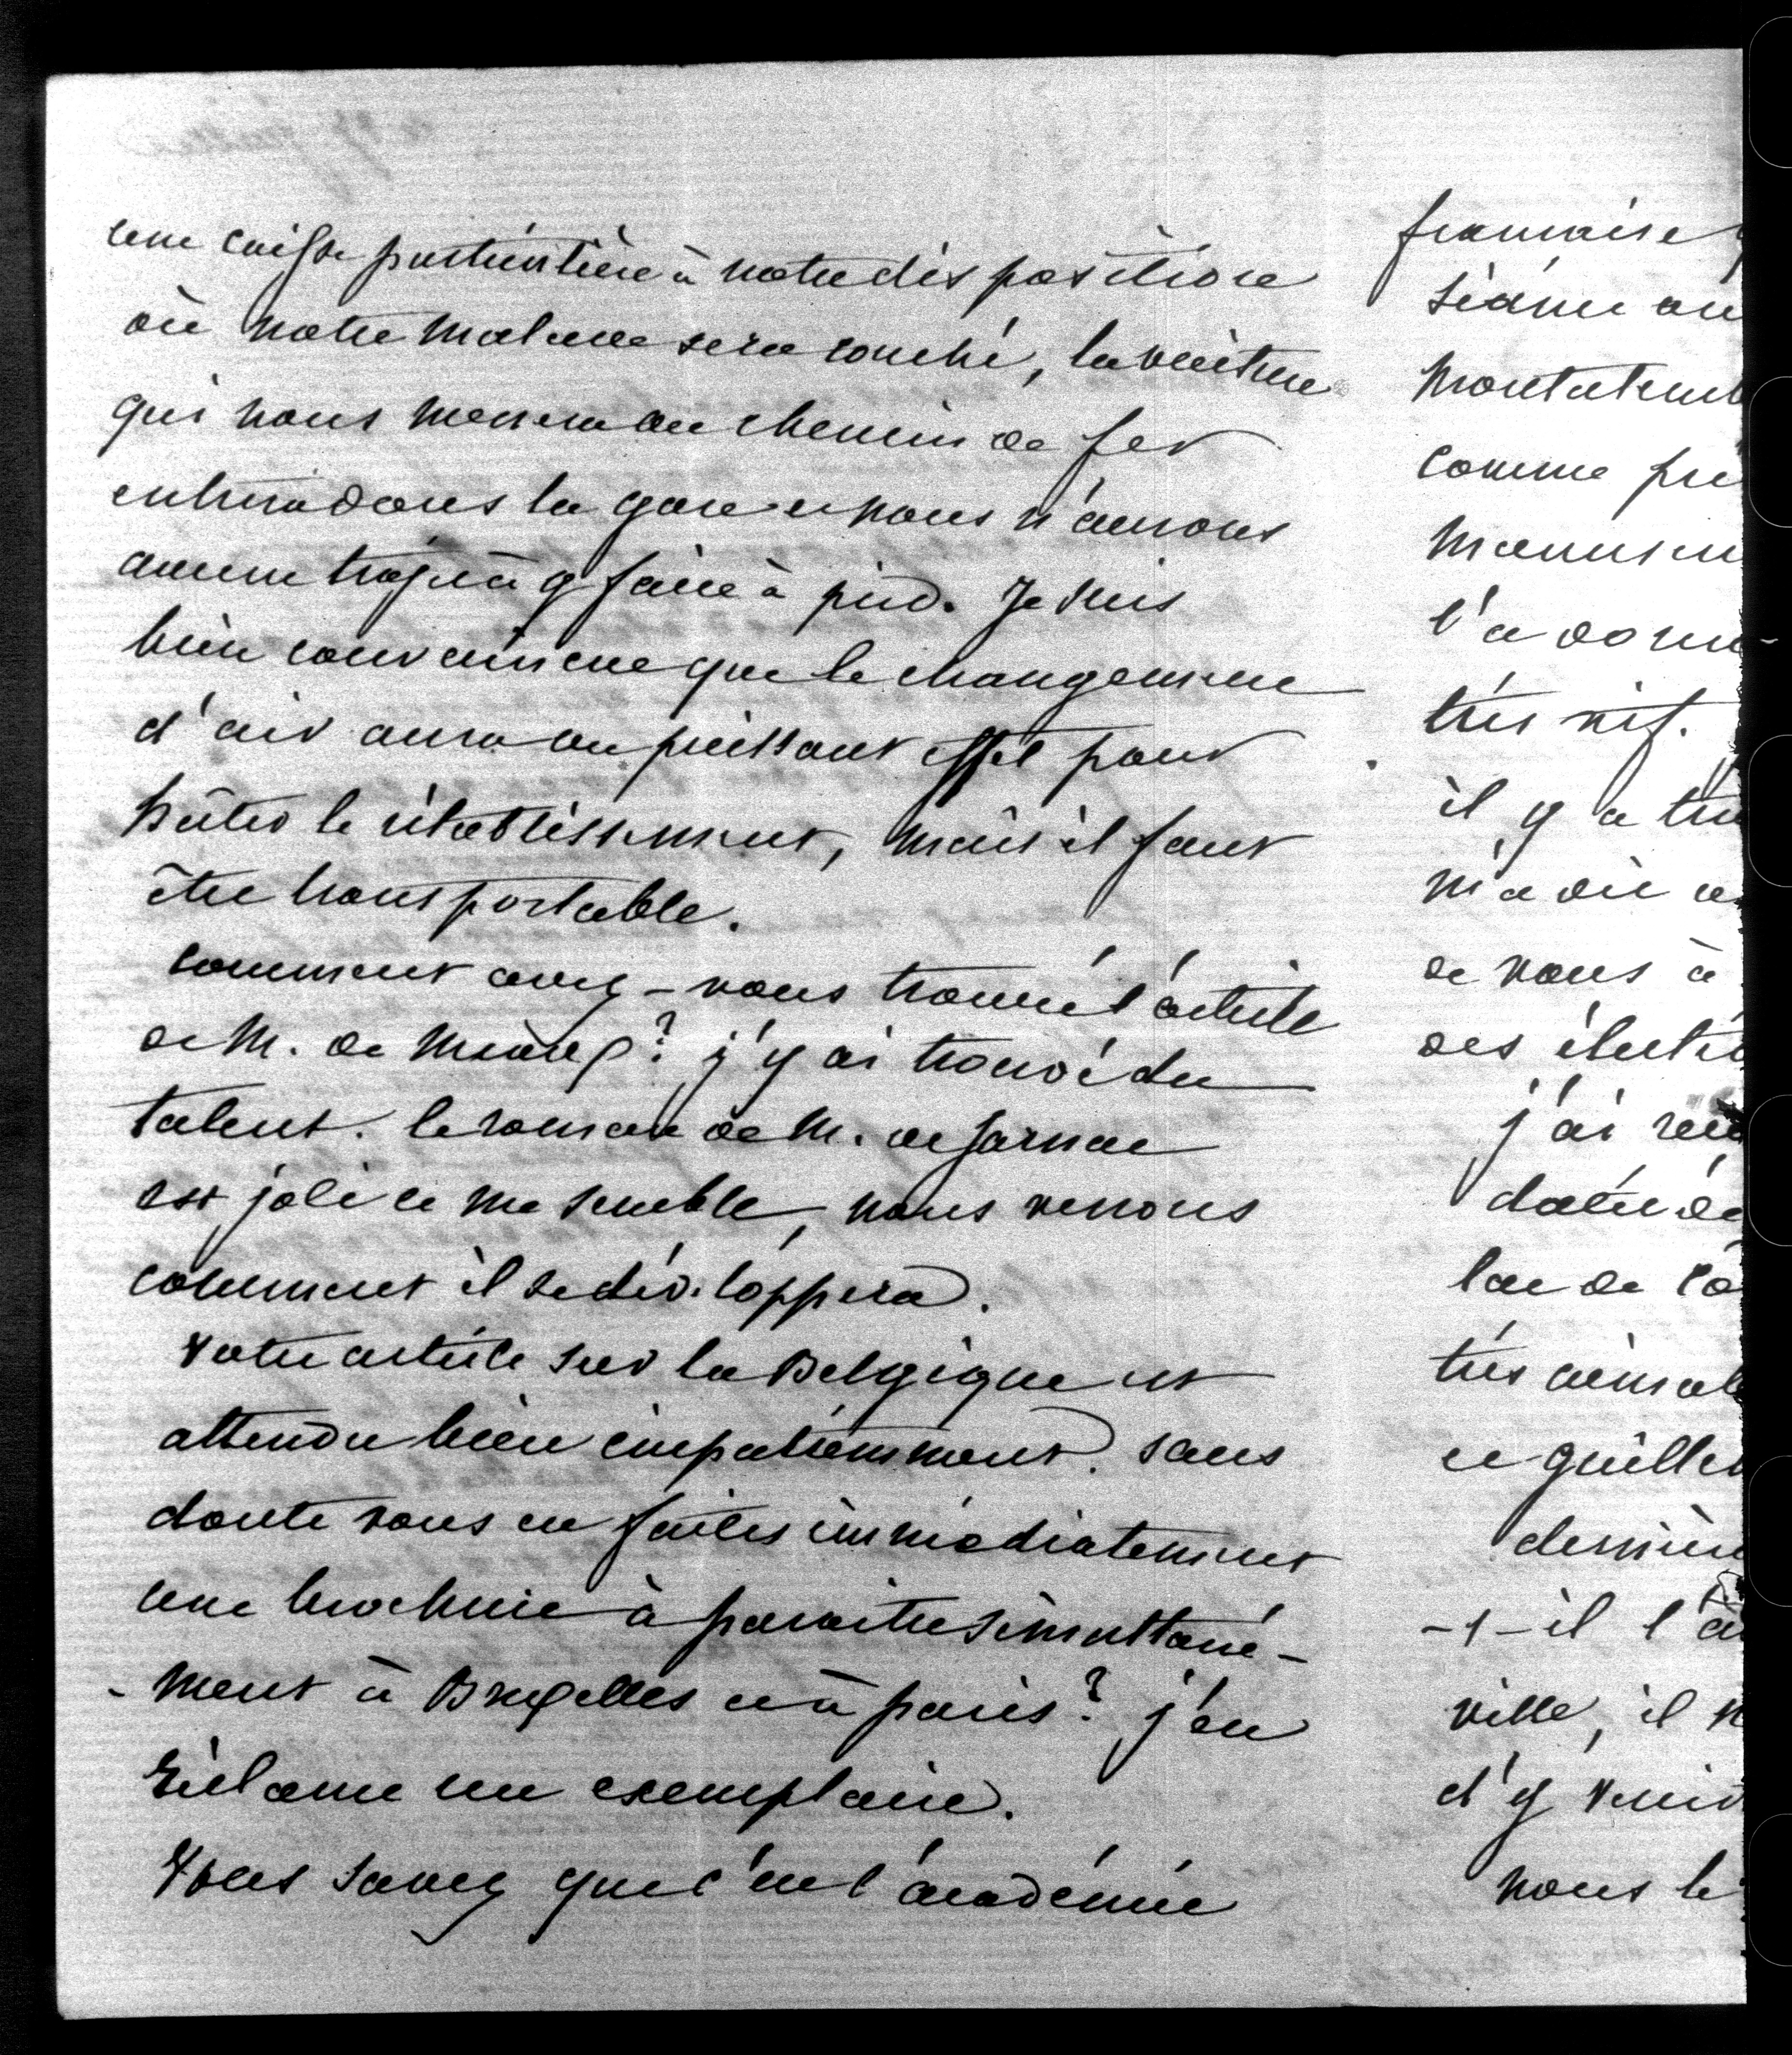 une caisse particulière à notre disposition
où notre malade sera couché, la voiture
qui nous menera au chemin de fer
entrera dans la gare et nous n'aurons
aucun trajet à y faire à pied. Je suis
bien convaincue que le changement
d'air aura un puissant effet pour
hâter le rétablissement, mais il faut
être transportable.
comment avez-vous trouvé l'article
de M. de ? j'y ai trouvé du
talent. le roman de M. de Jarnac
est joli ce me semble, nous verrons
comment il se développera.
Votre article sur la Belgique est
attendu bien impatiemment. sans
doute vous en faites immédiatement
une brochure à paraitre simultané-
-ment à Bruxelles et à paris? j'en
réclame un exemplaire.
Vous savez que c'est l'académie
française
séance
comme
l'a
très vif.
il y a
m'a dit
de vous à
des
j'ai
lac de
très
et
-t-il
ville, il
d'y venir
nous le